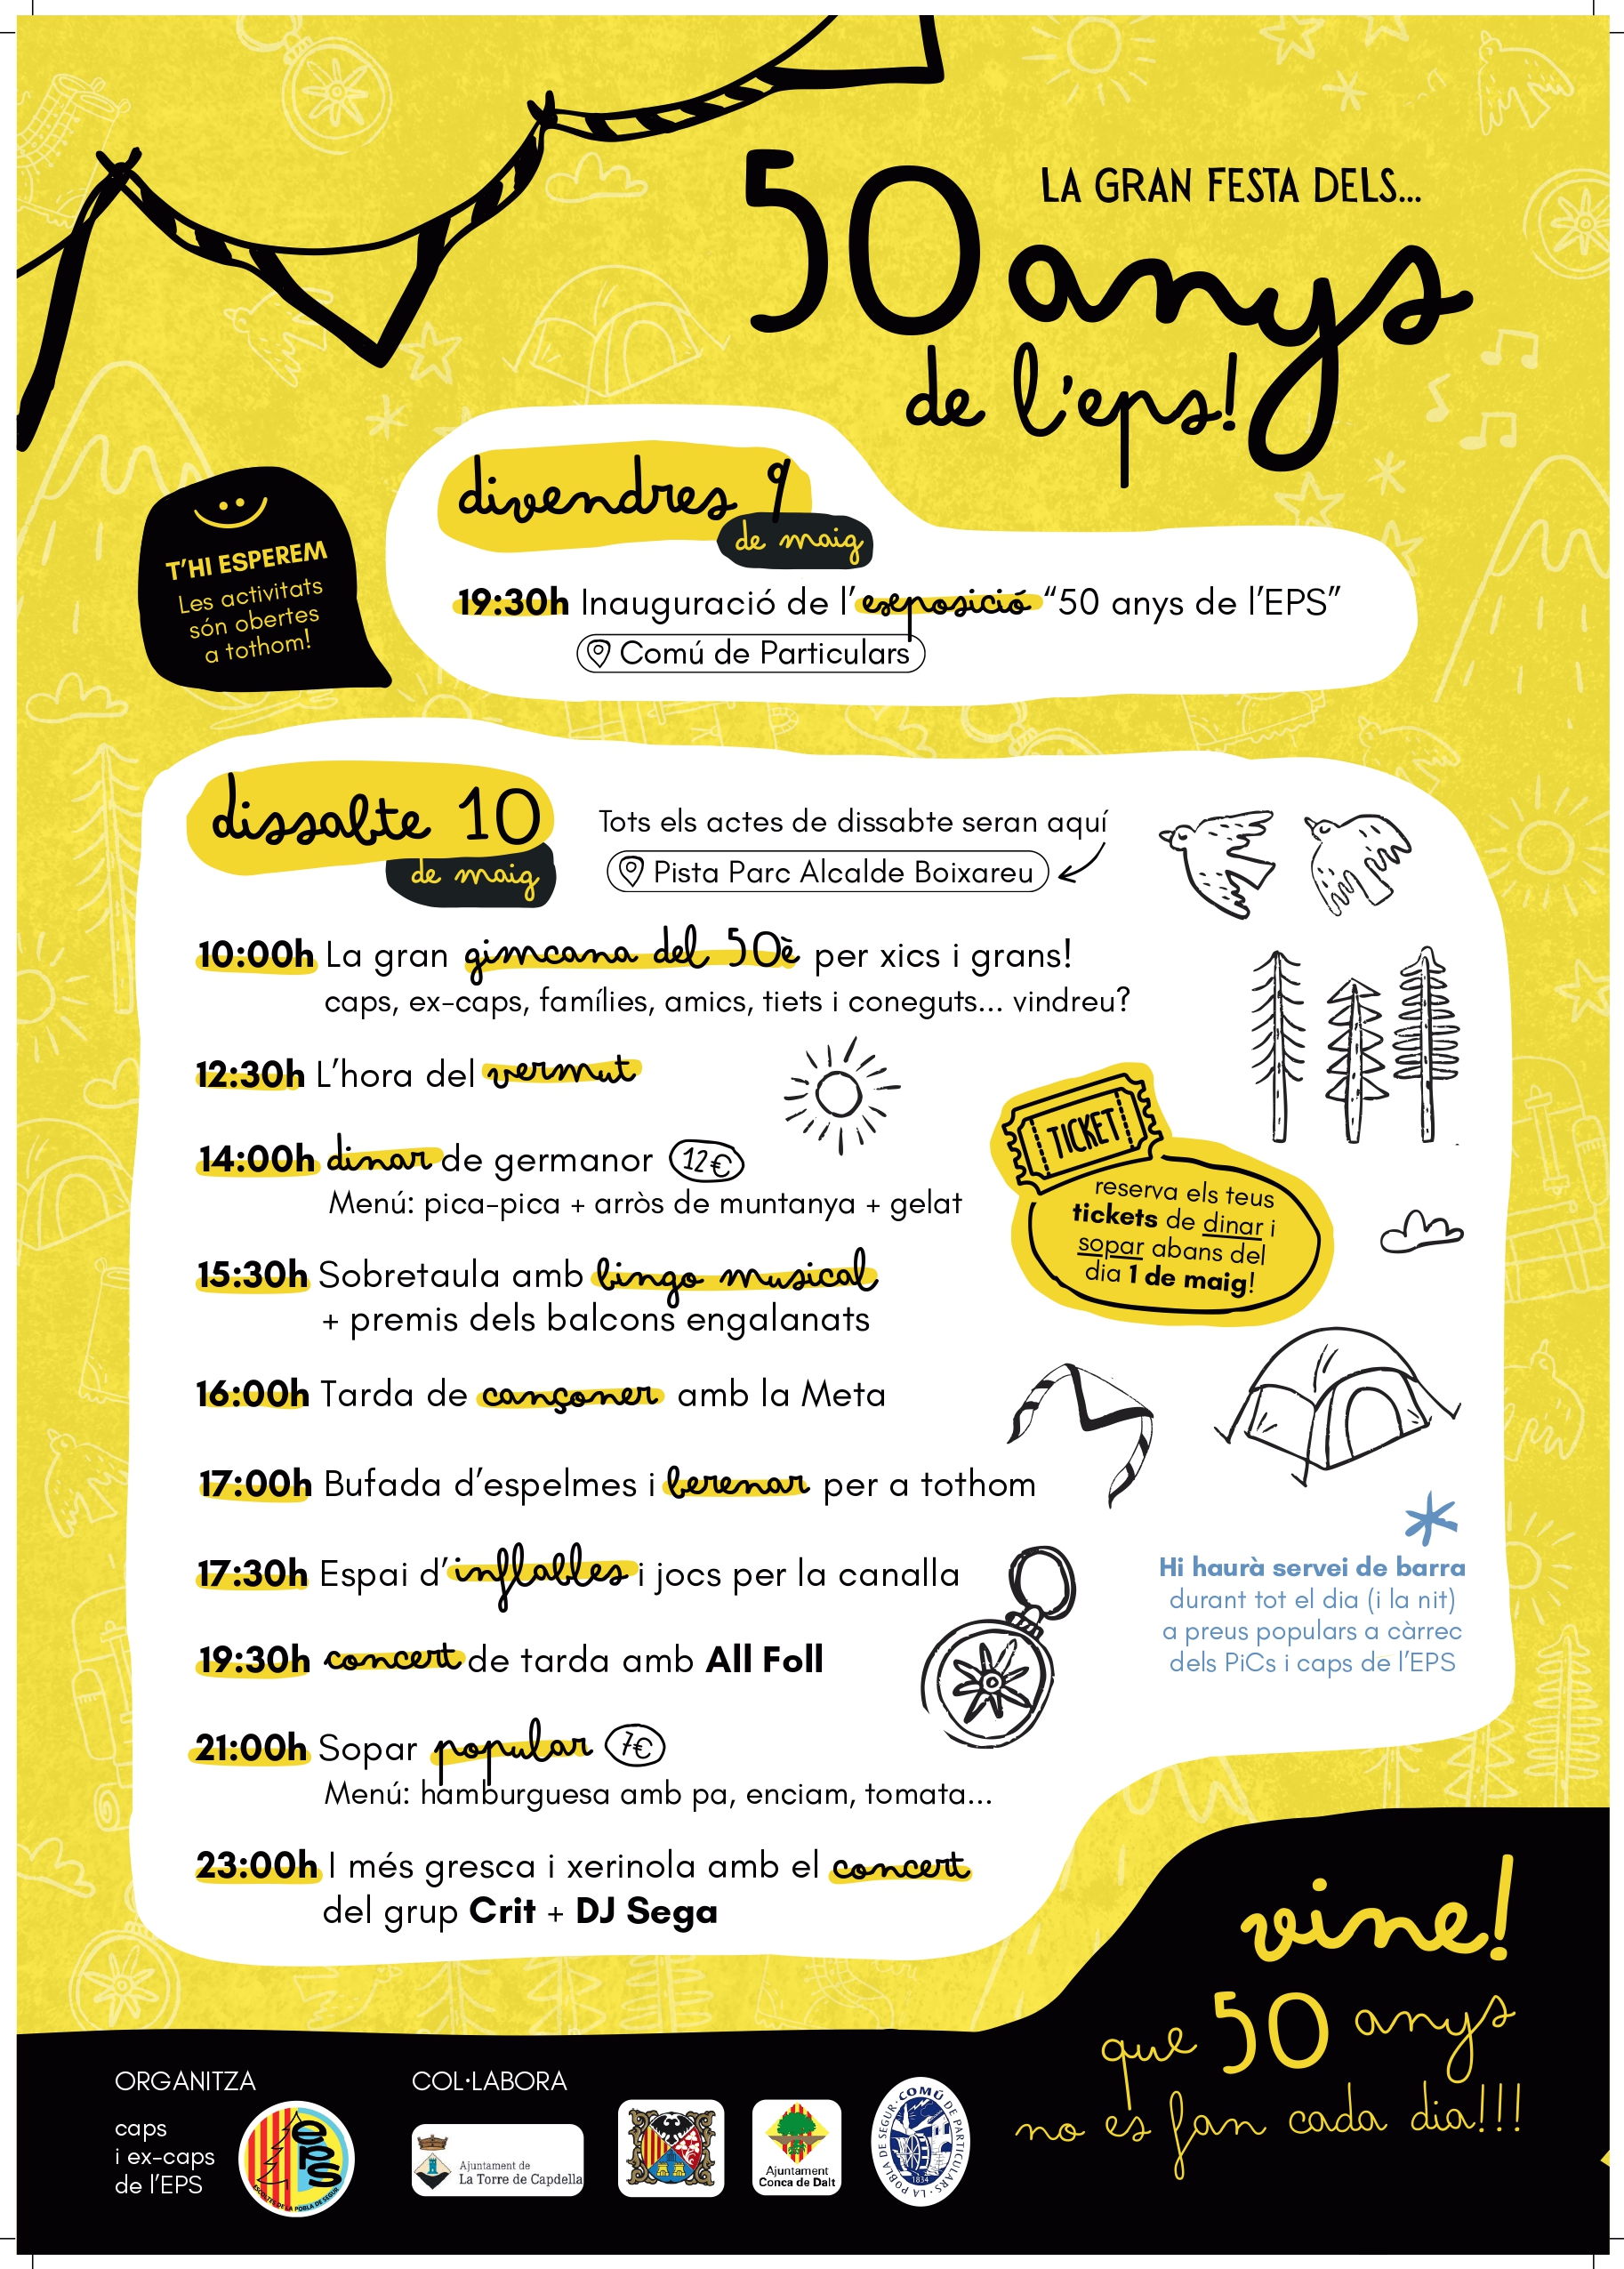 LA GRAN FESTA DELS...
50 anys
de l'eps!
divendres 9
de maig
T'HI ESPEREM
Les activitats
són obertes
a tothom!
19:30h Inauguració de l'exposició “50 anys de l'EPS”
Comú de Particulars
dissabte 10
de maig
Tots els actes de dissabte seran aquí
Pista Parc Alcalde Boixareu
10:00h La gran gimcana del 50è per xics i grans!
caps, ex-caps, famílies, amics, tiets i coneguts... vindreu?
12:30h L'hora del vermut
14:00h dinar de germanor 12€
Menú: pica-pica + arròs de muntanya + gelat
TICKET
reserva els teus
tickets de dinar i
sopar abans del
dia 1 de maig!
15:30h Sobretaula amb bingo musical
+ premis dels balcons engalanats
16:00h Tarda de cançoner amb la Meta
17:00h Bufada d'espelmes i berenar per a tothom
17:30h Espai d'inflables i jocs per la canalla
19:30h concert de tarda amb All Foll
Hi haurà servei de barra
durant tot el dia (i la nit)
a preus populars a càrrec
dels PiCs i caps de l'EPS
21:00h Sopar popular 7€
Menú: hamburguesa amb pa, enciam, tomata...
23:00h I més gresca i xerinola amb el concert
del grup Crit + DJ Sega
vine!
que 50 anys
no es fan cada dia!!!
ORGANITZA
caps
i ex-caps
de l'EPS
eps
ESCOLTES DE LA POBLA DE SEGUR
COL·LABORA
Ajuntament de
La Torre de Capdella
Ajuntament
Conca de Dalt
COMÚ DE PARTICULARS · LA POBLA DE SEGUR ·
1834